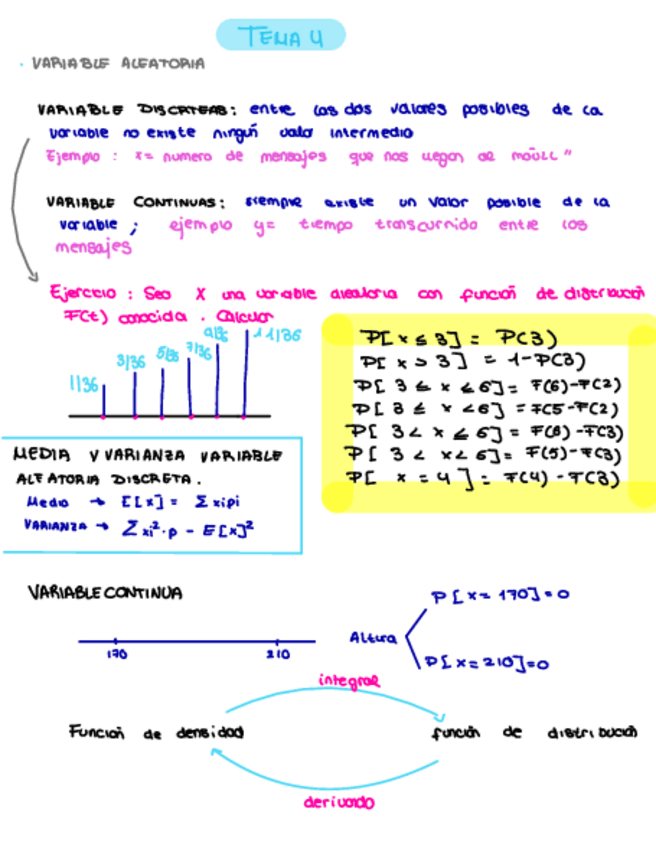 TEMA 4
· VARIABLE ALEATORIA
VARIABLE DISCRETAS: entre los dos valores posibles de la
variable no existe ningún valor intermedio
Ejemplo : x= numero de mensajes que nos llegan al
VARIABLE CONTINUAS: siempre existe un valor posible de la
variable ; ejemplo y= tiempo transcurrido entre los
mensajes
Ejercicio : Sea X una variable aleatoria con función de distribución
F(t) conocida . Calcular
1/36 3/36 5/36 7/36 9/36 11/36
P[x ≤ 3] = P(3)
P[x > 3] = 1-P(3)
P[3 ≤ x ≤ 6] = F(6)-F(2)
P[3 ≤ x < 6] = F(5-F(2)
P[3 < x ≤ 6] = F(6)-F(3)
P[3 < x < 6] = F(5)-F(3)
P[x = 4] = F(4) - F(3)
MEDIA Y VARIANZA VARIABLE
ALEATORIA DISCRETA.
Media → E[x] = Σ xipi
VARIANZA → Σ xi²·p - E[x]²
VARIABLE CONTINUA
P[x= 170]=0
Altura
170 210
P[x=210]=0
integral
Función de densidad
función de distribución
derivado